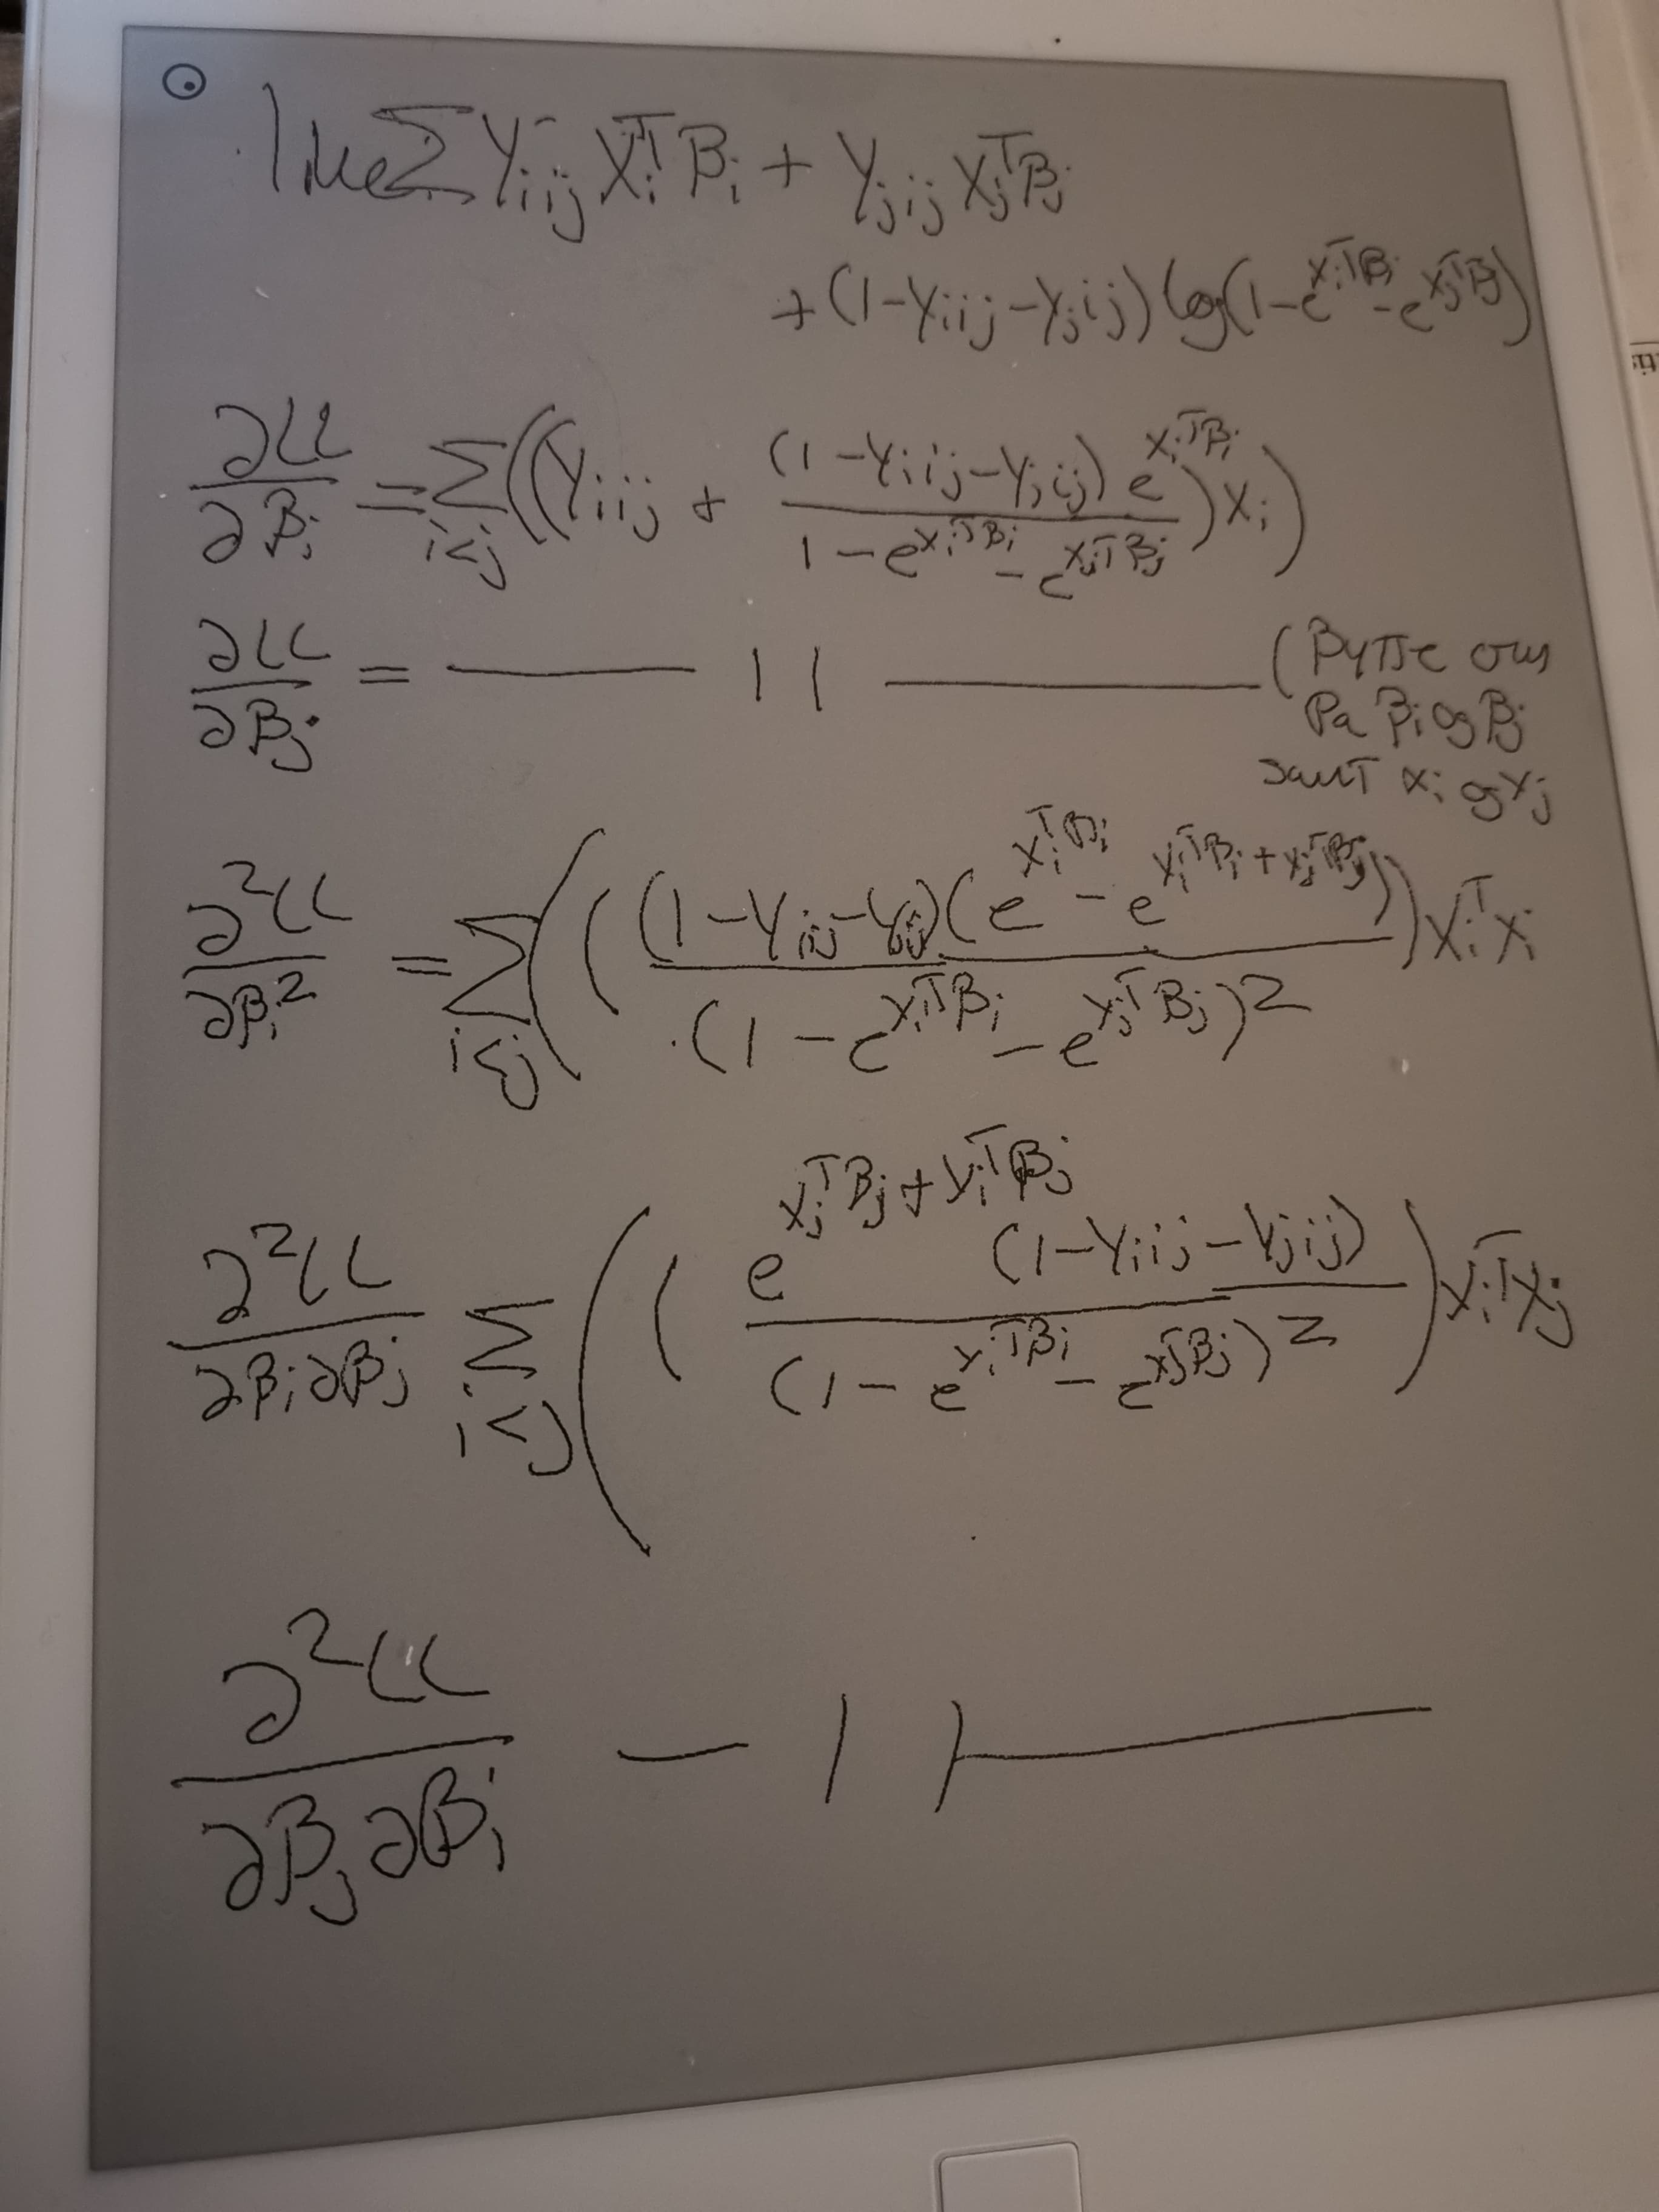 like Σ Y_iij X_i^T β_i + Y_jij X_j^T β_j
+ (1-Y_iij-Y_jij) log(1-e^{X_i^T β_i}-e^{X_j^T β_j})
∂ll/∂β_i = Σ_{i<j} ((Y_iij + (1-Y_iij-Y_jij) e^{X_i^T β_i} / (1-e^{X_i^T β_i}-e^{X_j^T β_j})) X_i)
∂ll/∂β_j = —— 11 —— (Bytte om
på β_i og β_j
samt x_i og x_j
∂²ll/∂β_i² = Σ_{i<j} (((1-Y_iij-Y_jij)(e^{X_i^T β_i} - e^{X_i^T β_i + X_j^T β_j})) / (1-e^{X_i^T β_i}-e^{X_j^T β_j})²) X_i^T X_i
∂²ll/∂β_i∂β_j Σ_{i<j} ((e^{X_j^T β_j + X_i^T β_j} (1-Y_iij-Y_jij) / (1-e^{X_i^T β_i}-e^{X_j^T β_j})²) X_i^T X_j
∂²ll/∂β_j∂β_i — 11 ——